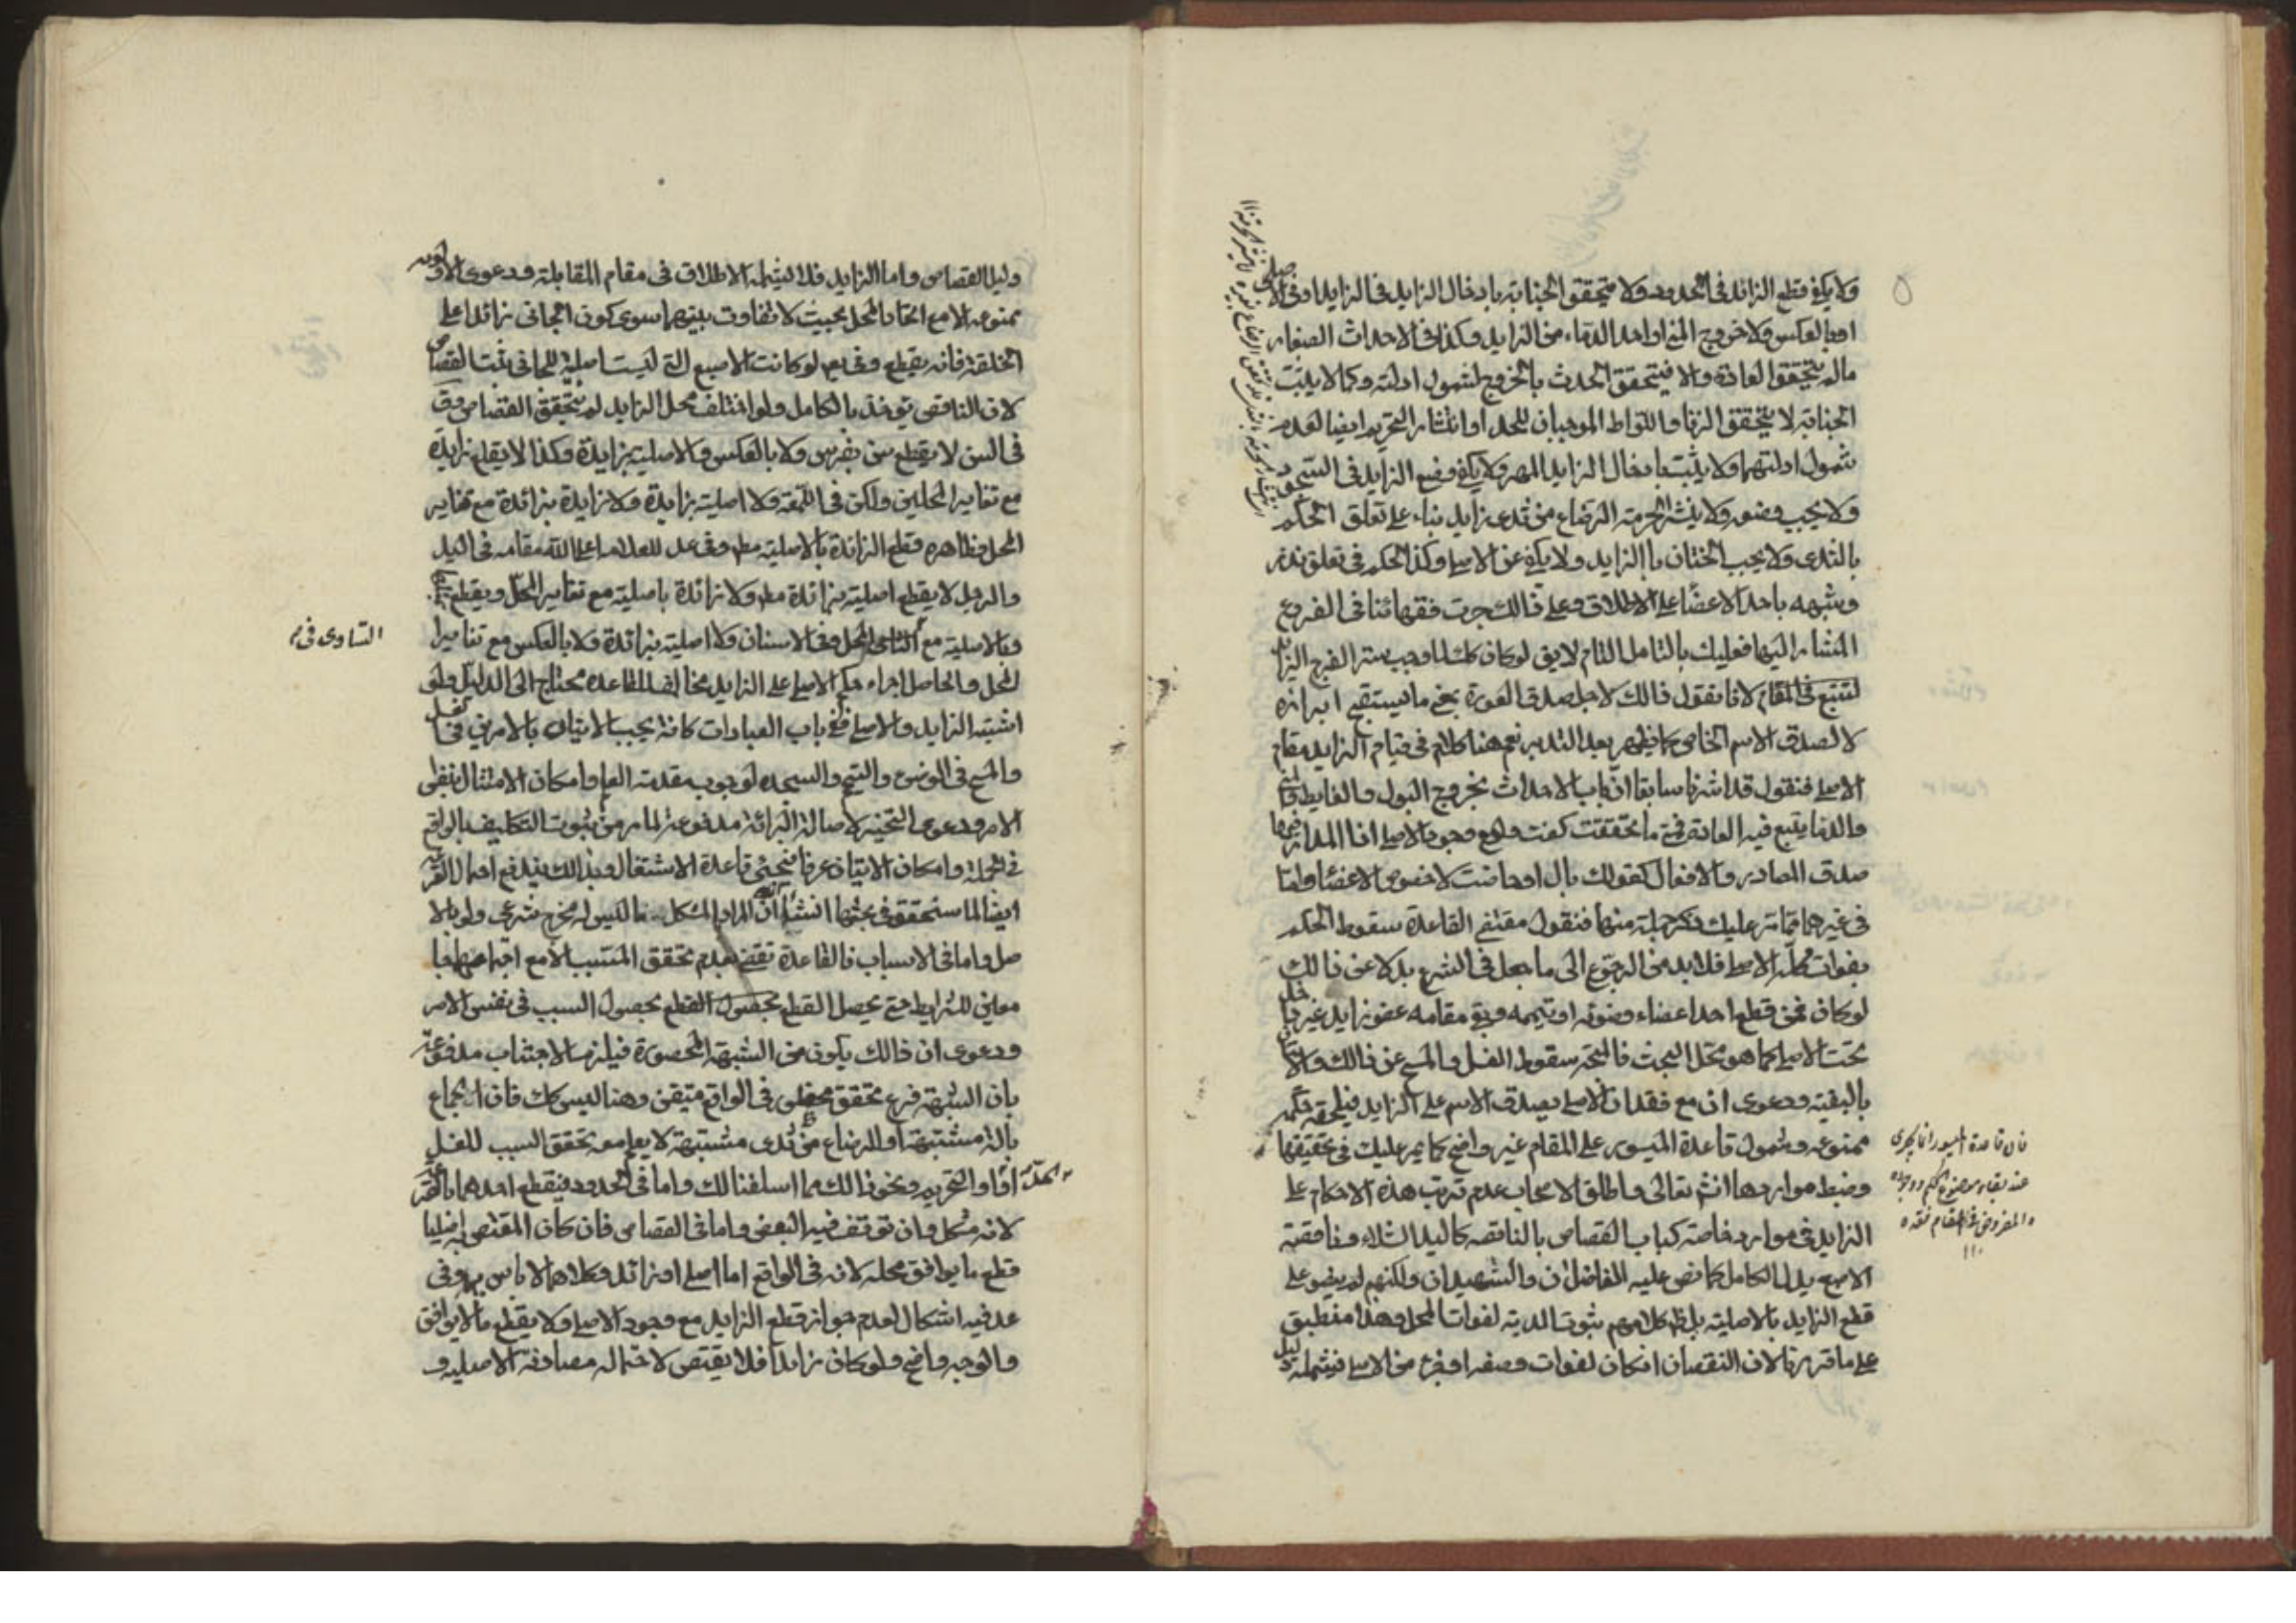 ولا يكفي قطع الزائد في الحدود ولا يتحقق الجنابة بادخال الزايد في الزايد او في الاصلي
او بالعكس ولا خروج المني او احد الدماء من الزايد وكذا في الاحداث الصغار
ما لم يتحقق العادة والا فيتحقق الحدث بالخروج لشمول ادلته وكما لا يثبت
الجنابة لا يتحقق الزنا واللواط الموجبان للحد او انتشار التحريم ايضا لعدم
شمول ادلتهما ولا يثبت بادخال الزايد المهر ولا يكفي وضع الزايد في السجود
ولا يجب وضعه ولا ينشر الحرمة الرضاع من ثدي زايد بناء على تعلق الحكم
بالثدي ولا يجب الختان بالزايد ولا يكفي عن الاصلي وكذا الحكم في تعلق نذر
وشبهه باحد الاعضاء على الاطلاق وعلى ذالك جرت فقهائنا في الفروع
المشار اليها فعليك بالتامل التام لايق لو كان كذلك لما وجب ستر الفرج الزايد
لتتبع في المقام لانا نقول ذالك لاجل صدق العورة بمعنى ما يستقبح ابرازه
لا لصدق الاسم الخاص كما يظهر بعد التدبر نعم هنا كلام في قيام الزايد مقام
الاصلي فنقول قد اشرنا سابقا ان باب الاحداث بخروج البول والغايط والمني
والدماء يتبع فيه العادة فمتى ما تحققت كفت ولو مع وجود الاصلي اذ المدار فيها
صدق المصادر والافعال كقولك بال او حاضت لا خصوص الاعضاء واما
في غيرهما مما مر عليك ذكر جملة منها فنقول مقتضى القاعدة سقوط الحكم
بفوات محله الاصلي فلا بد من الرجوع الى ما جعل في الشرع بدلا عن ذالك
لو كان فمن قطع احد اعضاء وضوئه او تيممه وبقي مقامه عضو زايد غير داخل
تحت الاصلي كما هو محل البحث فالمتجه سقوط الغسل والمسح عن ذالك والاتيان
بالبقية ودعوى ان مع فقدان الاصلي يصدق الاسم على الزايد فيلحقه حكمه
ممنوعه وشمول قاعدة الميسور على المقام غير واضح كما يمر عليك في تحقيقها
وضبط مواردها انشم تعالى واطلق الاصحاب عدم ترتب هذه الاحكام على
الزايد في موارد خاصة كباب القصاص بالناقصه كاليد الشلاء وناقصة
الاصبع بدل الكامل كما نص عليه الفاضلان والشهيدان ولكنهم لم ينصوا على
قطع الزايد بالاصلية بل ظ كلامهم ثبوت الدية لفوات المحل وهذا منطبق
على ما قررنا لان النقصان ان كان لفوات وصف او جزء من الاصلي فيشمله دليل
فان قاعدة الميسور انما يجري
عند بقاء موضوع الحكم ووجوده
والمفروض في المقام فقده
دليل القصاص واما الزايد فلا يشمله الاطلاق في مقام المقابلة ودعوى الاولوية
ممنوعه الا مع اتحاد المحل بحيث لا تفاوت بينهما سوى كون الجاني زائدا على
الخلقة فانه يقطع وفي عد لو كانت الاصبع التي ليست اصلية للجاني ثبت القصاص
لان الناقص يؤخذ بالكامل ولو اختلف محل الزايد لم يتحقق القصاص وق
في السن لا يقطع سن بضرس ولا بالعكس والاصلية بزايدة وكذا لا يقلع زايدة
مع تغاير المحلين ولكن في اللمعة ولا اصلية بزايدة ولا زايدة بزائدة مع تغاير
المحل وظاهره قطع الزائدة بالاصلية مط وفي عد للعلامة اعلى الله مقامه في اليد
والرجل لا يقطع اصلية بزائدة مط ولا زائدة باصلية مع تغاير المحل ويقطع
وبالاصلية مع التساوي في المحل وفي الاسنان ولا اصلية بزائدة ولا بالعكس مع تغاير
التساوي في م
المحل والحاصل اجراء حكم الاصلي على الزايد مخالف للقاعدة محتاج الى الدليل ولو
اشتبه الزايد والاصلي ففي باب العبادات كافة يجب الاتيان بالامرين في الغسل
والمسح في الوضوء والتيمم والسجده لوجوب مقدمة العلم وامكان الامتثال بنفس
الامر ودعوى التخيير لاصالة البرائة مدفوعة لما مر من ثبوت التكليف بالواقع
في الجملة وامكان الاتيان عرفا فيجئ قاعدة الاشتغال وبذالك يندفع احتمال القرعة
ايضا لما سنحقق في بحثها انشاء الله ان المراد بالمشكل ما ليس له مخرج شرعي ولو بالا
صل واما في الاسباب فالقاعدة تقتضي عدم تحقق المسبب الا مع اجتماعهما جا
معين للشرايط حتى يحصل القطع بحصول القطع بحصول السبب في نفس الامر
ودعوى ان ذالك يكون من الشبهة المحصورة فيلزم الاجتناب مدفوعة
بان الشبهة فرع تحقق محظور في الواقع متيقن وهنا ليس كك فان الجماع
بالة مشتبهة او الرضاع من ثدي مشتبهة لا يعلم معه تحقق السبب للغسل
والحد او التحريم ونحو ذالك مما اسلفنا لك واما في الحدود فيقطع احدهما بالقرعة
لانه مشكل وان توقف فيه البعض واما في القصاص فان كان المقتص به اصليا
قطع ما يوافق محله لانه في الواقع اما اصلي او زائد وكلاهما لا باس به وفي
عد فيه اشكال لعدم جواز قطع الزايد مع وجود الاصلي ولا يقطع ما لا يوافق
والوجه واضح ولو كان زايدا فلا يقتص لاحتماله مصادفة الاصلية و